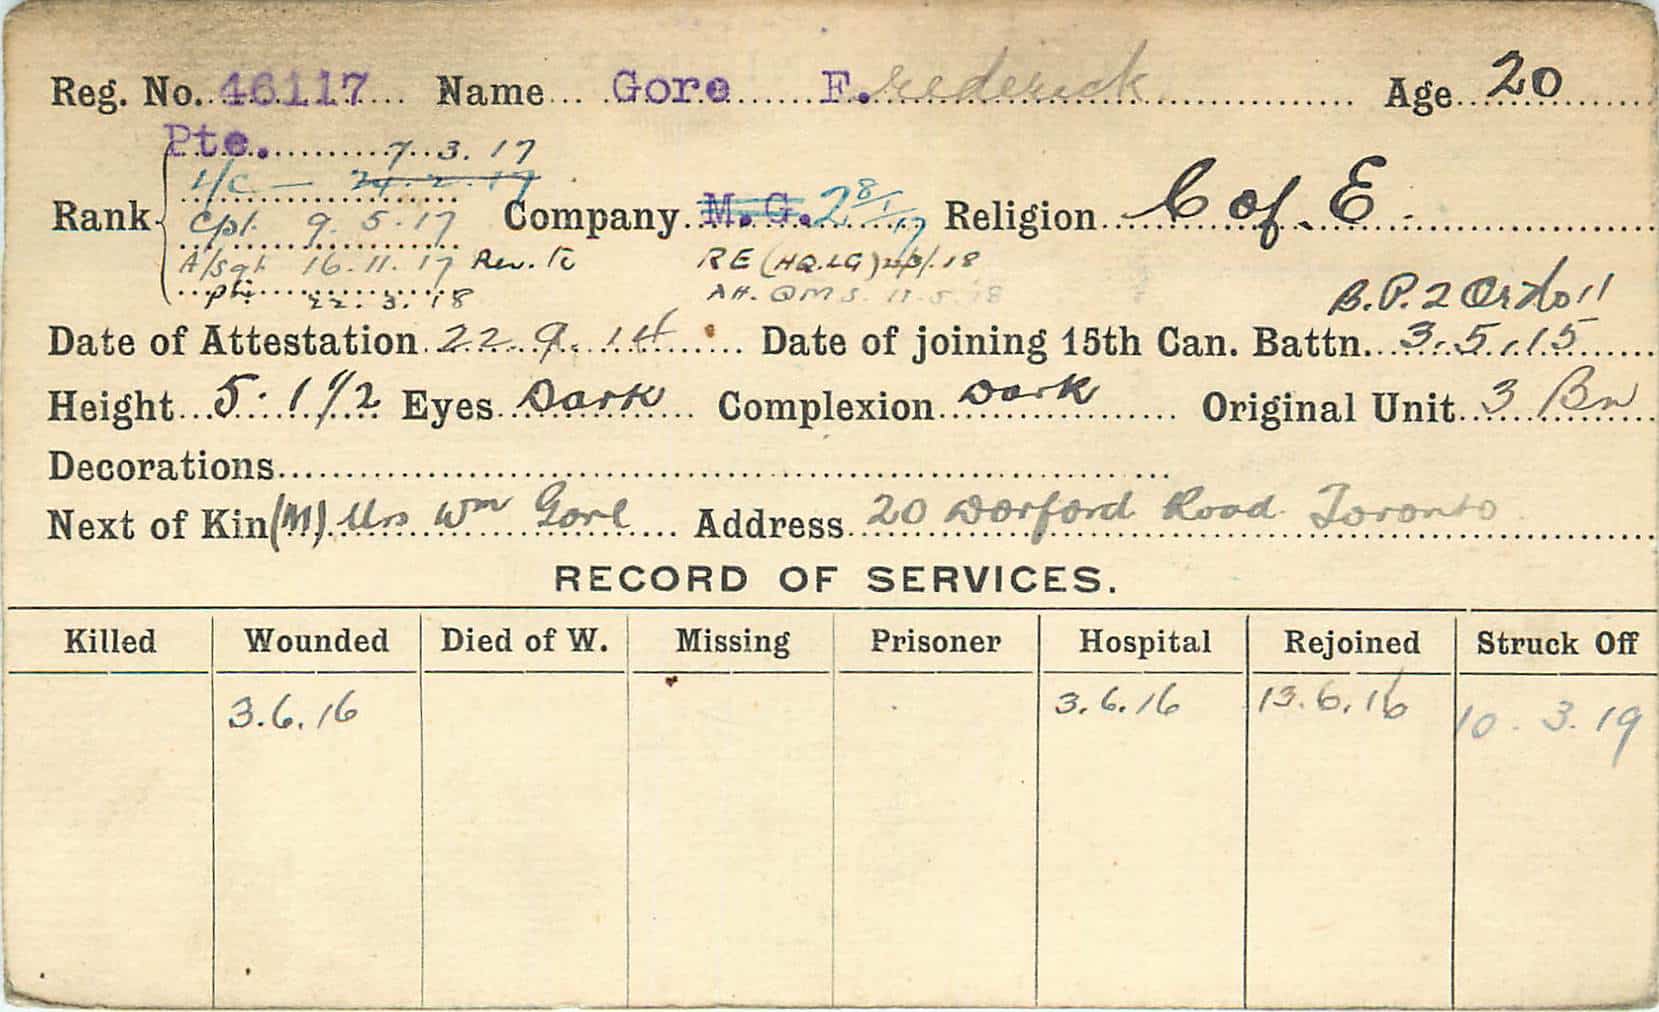 Reg. No. 46117 Name Gore F.rederick Age 20
Pte. 7.3.17
L/C — 24.2.17
Rank Cpl. 9.5.17 Company M.G. 2 8/1/17 Religion C of E.
A/Sgt 16.11.17 Rev. to RE (HQ.LG) /18
Pte 22.3.18 Att. QMS. 11.5.18 B.P.2 Ord 011
Date of Attestation 22.9.14 Date of joining 15th Can. Battn. 3.5.15
Height 5.1 1/2 Eyes Dark Complexion Dark Original Unit 3 Bn
Decorations
Next of Kin (M) Mrs Wm Gore Address 20 Dorford Road Toronto
RECORD OF SERVICES.
Killed Wounded Died of W. Missing Prisoner Hospital Rejoined Struck Off
3.6.16 3.6.16 13.6.16 10.3.19